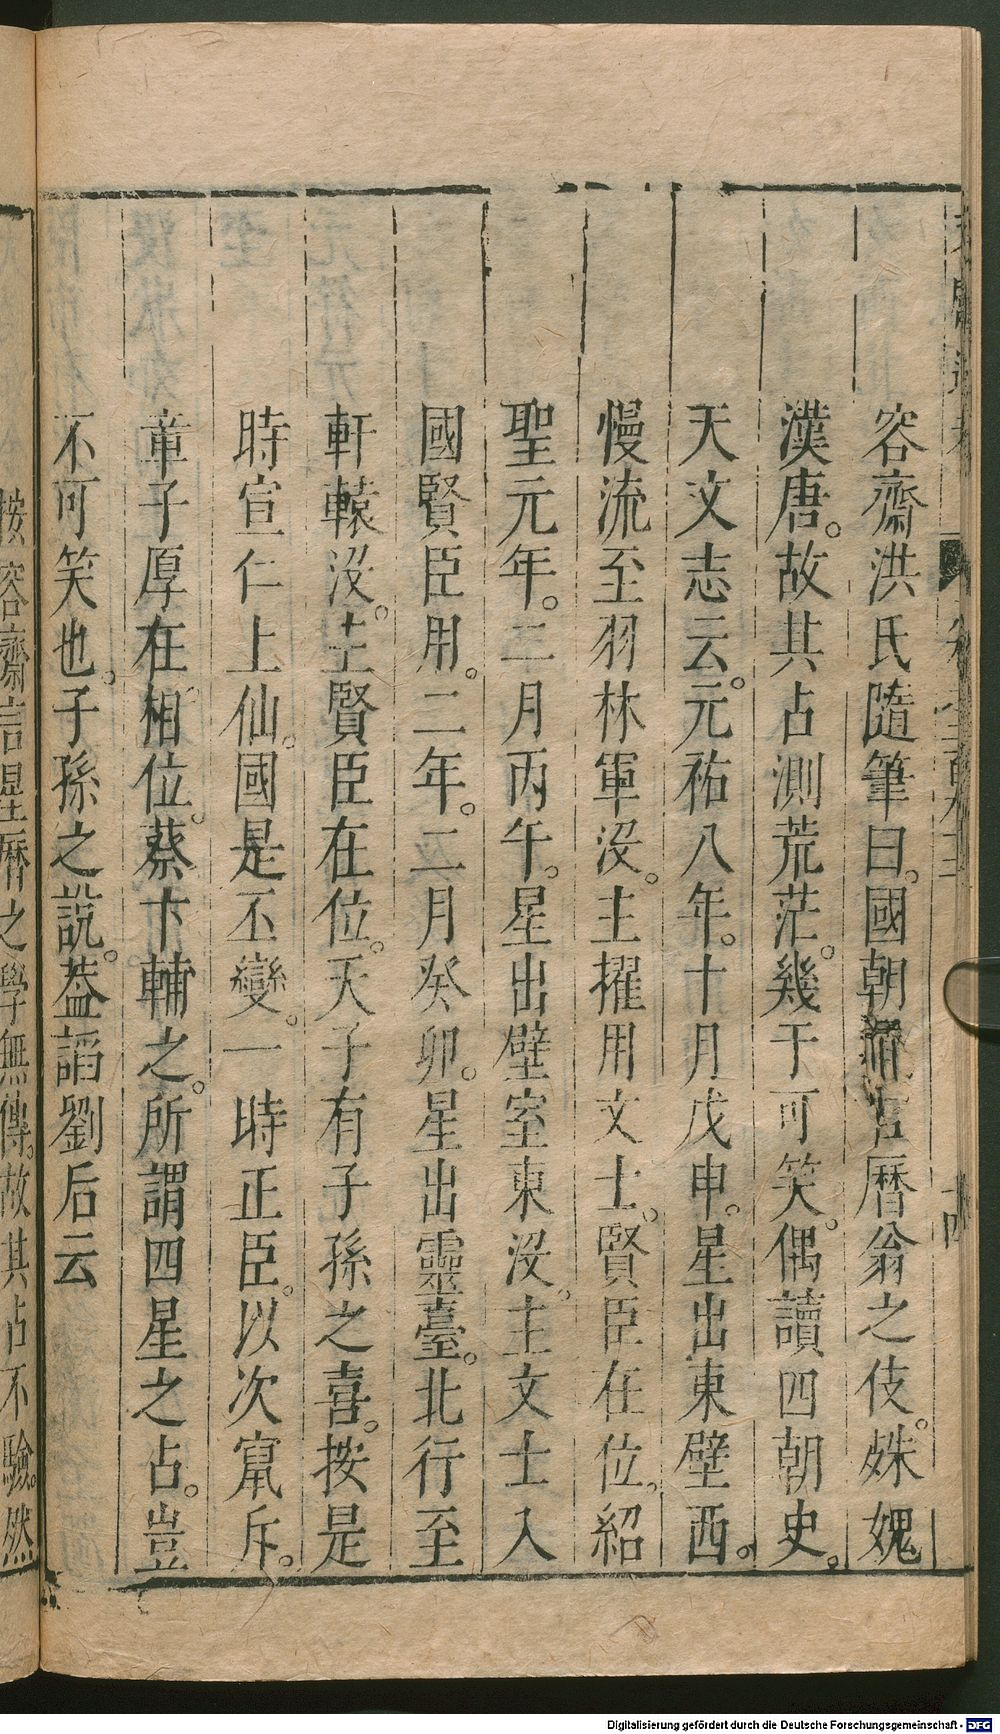 容齋洪氏隨筆曰。國朝星官曆翁之伎。殊媿
漢唐。故其占測荒茫。幾于可笑。偶讀四朝史。
天文志云。元祐八年。十月戊申。星出東壁西。
慢流至羽林軍沒。主擢用文士。賢臣在位。紹
聖元年。二月丙午。星出壁室東沒。主文士入
國賢臣用。二年。二月癸卯。星出靈臺。北行至
軒轅沒。主賢臣在位。天子有子孫之喜。按是
時宣仁上仙。國是丕變。一時正臣。以次竄斥。
章子厚在相位。蔡卞輔之。所謂四星之占。豈
不可笑也。子孫之說。葢謟劉后云
按容齋言星曆之學無傳。故其占不驗。然
Digitalisierung gefördert durch die Deutsche Forschungsgemeinschaft - DFG